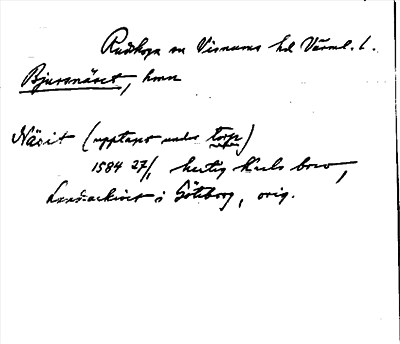 Rudskoga sn Visnums hd Värml. l.
Bjursnäset, hmn
Näsit (upptages under torp)
1584 27/1 hertig Karls brev,
Landsarkivet i Göteborg, orig.